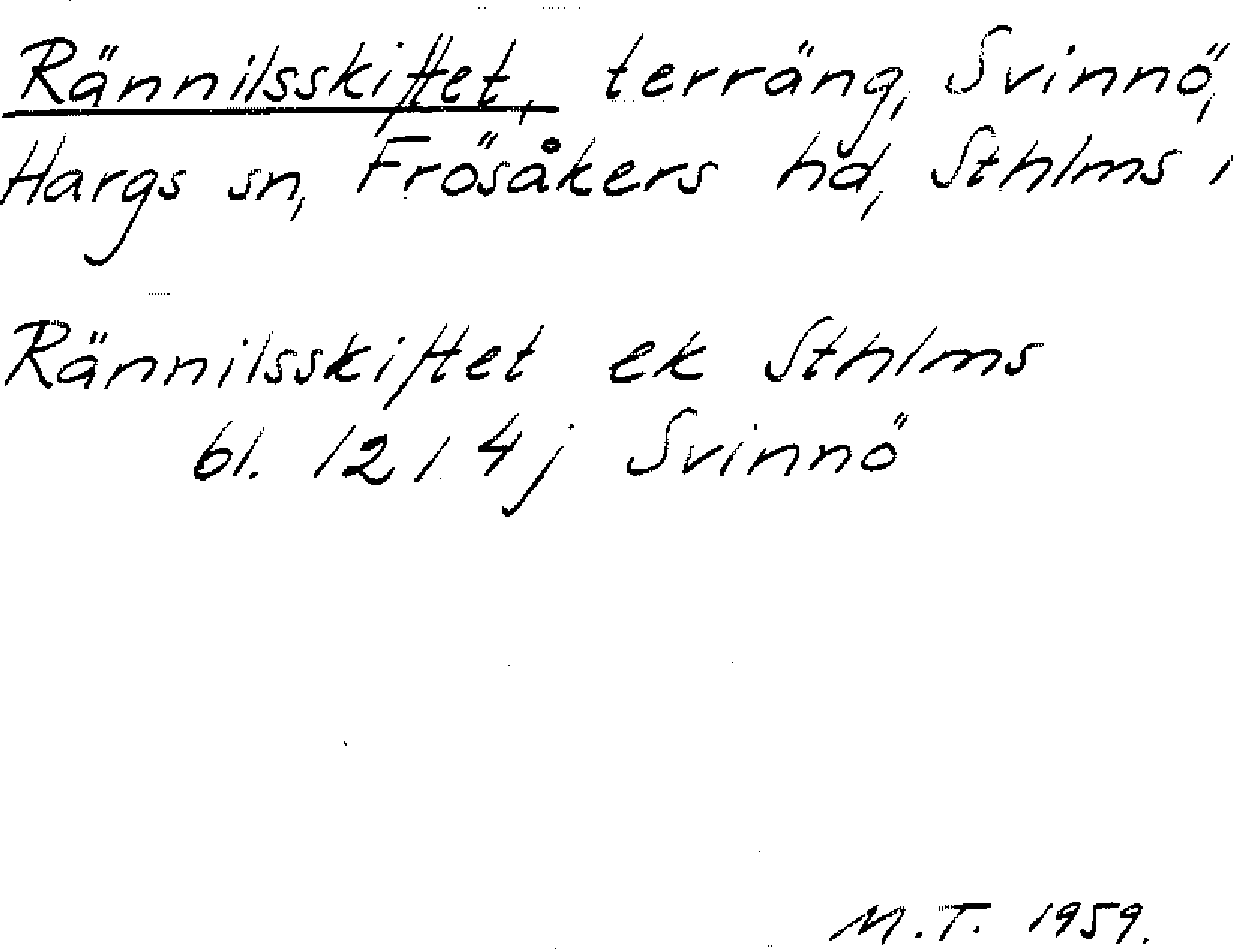 Rännilsskiftet, terräng, Svinnö,
Hargs sn, Frösåkers hd, Sthlms l
Rännilsskiftet ek Sthlms
bl. 12 1 4 j Svinnö
M.T. 1959.